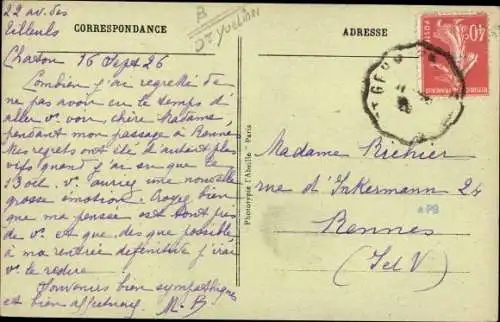 22 av. des
Tilleuls
CORRESPONDANCE
B
Dt Yvelines
ADRESSE
Chatou 16 Sept 26
Combien j'ai regretté de
ne pas avoir eu le temps d'
aller v. voir chère Madame,
pendant mon passage à Rennes
Mes regrets ont été d'autant plus
vifs quand j'ai su que le
13 v. auriez une nouvelle
grosse émotion. Croyez bien
que ma pensée est tout près
de v. et que dès que possible
à ma rentrée définitive j'irai
v. le redire.
Souvenirs bien sympathiques
et bien affectueux M. B
Phototypie l'Abeille - Paris
POSTES
40c
Madame
rue d'Inkermann 24
Rennes
(I et V)